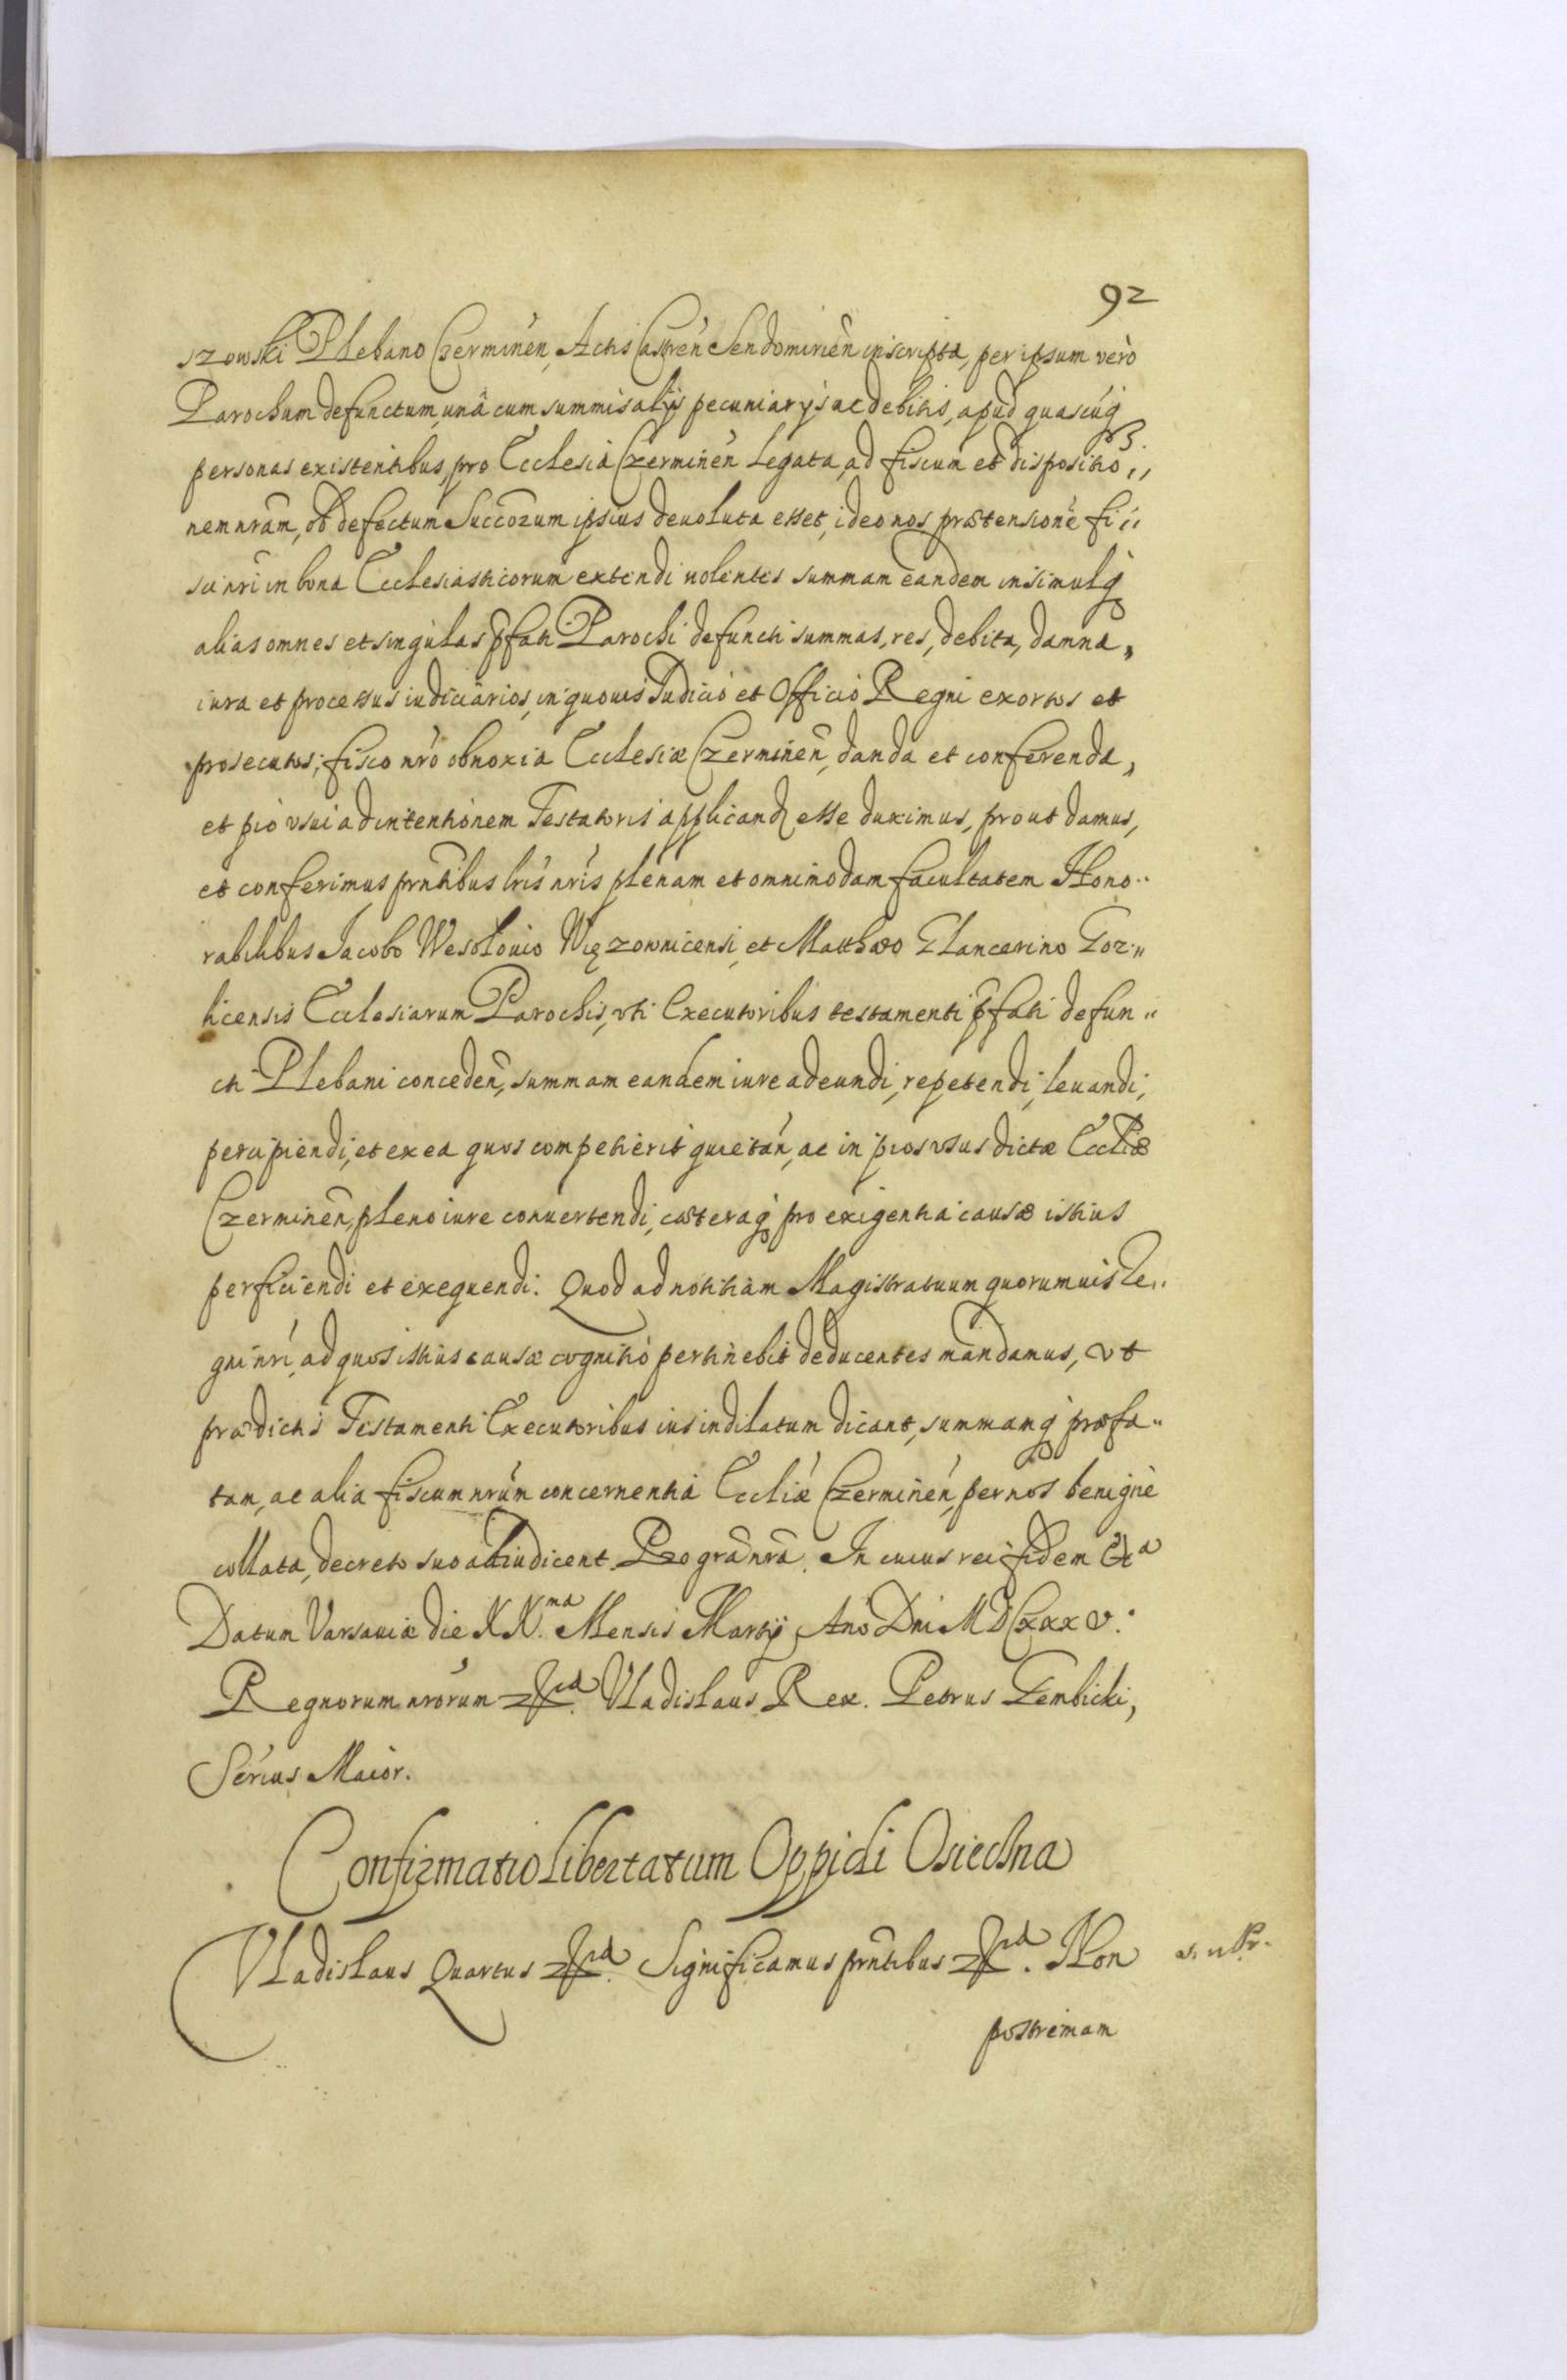 92
szowski Plebano Czerminen̄, Actis Castren̄ Sendomirien̄ inscripta, per ipsum verò
Parochum defunctum, unâ cum summis alijs pecuniarijs ac debitis, apud quascuq́
personas existentibus, pro Ecclesiâ Czerminen̄ legata, ad fiscum et dispositio„
nem nrām, ob defectum Succorum ipsius deuoluta esset, ideo nos prætensionē fi„
sci nri in bona Ecclesiasticorum extendi nolentes summam eandem insimulq́
alias omnes et singulas p̄fati Parochi defuncti summas, res, debita, damna,
iura et processus iudiciarios, in quouis Judicio et Officio Regni exortos et
prosecutos, fisco nrō obnoxia Ecclesiæ Czerminen̄, danda et conferenda,
et pio vsui ad intentionem Testatoris applicand esse duximus, prout damus,
et conferimus prntibus lris nris plenam et omnimodam facultatem Hono„
rabilibus Jacobo Wesolouio Więzownicensi, et Matthæo Glancerino Gor„
licensis Ecclesiarum Parochis, vti Executoribus testamenti p̄fati defun„
cti Plebani conceden̄, summam eandem iure adeundi, repetendi, leuandi,
percipiendi, et ex ea quos competierit quietan̄, ac in pios vsus dictæ Eccliæ
Czerminen̄, pleno iure conuertendi, cæteraq́ pro exigentia causæ istius
perficiendi et exequendi. Quod ad notitiam Magistratuum quorumuis Re„
gni nri, ad quos istius causæ cognitio pertinebit deducentes mandamus, vt
prædictis Testamenti Executoribus ius indilatum dicant, summamq́ præfa„
tam, ac alia fiscum nrum concernentia Eccliæ Czerminen̄, per nos benignè
collata, decreto suo adiudicent. Pro grā nrā. In cuius rei fidem &a
Datum Varsauiæ die XX.ma Mensis Martij Ano Dni MDCxxxv.
Regnorum nrorum &c. Vladislaus Rex. Petrus Gembicki,
Secrius Maior.
Confirmatio libertatum Oppidi Osiechna
Vladislaus Quartus &c. Significamus prntibus &c. Non
postremam